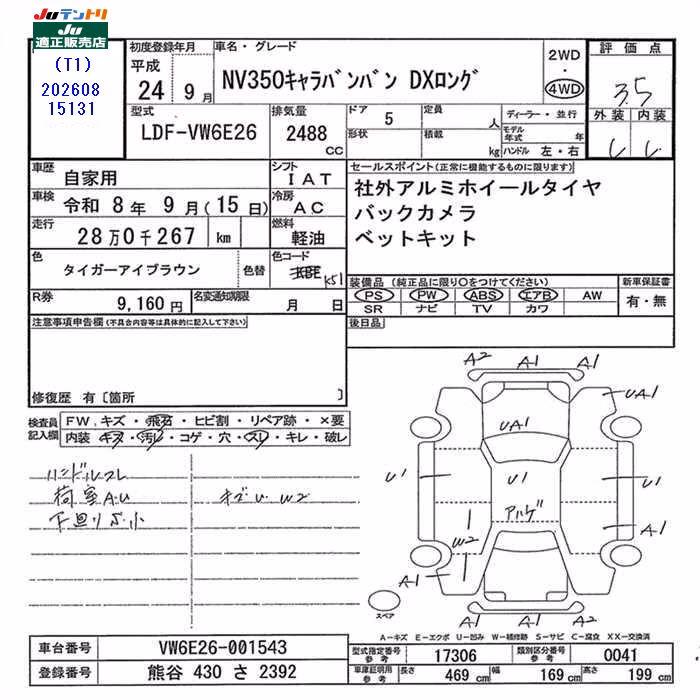 Juテントリ
Ju
適正販売店
(T1)
202608
15131
初度登録年月
平成
24 9月
車名・グレード
NV350キャラバンバン DXロング
2WD
・
4WD
評価点
3.5
外装 内装
型式
LDF-VW6E26
排気量
2488
CC
ドア
5
形状
定員
人
積載
kg
ディーラー・並行
モデル年式 年
ハンドル 左・右
車歴
自家用
シフト
IAT
車検
令和 8年 9月(15日)
冷房
AC
走行
28万0千267 km
燃料
軽油
色
タイガーアイブラウン
色替
色コード
K51
R券
9,160円
名変通知期限
月 日
セールスポイント(正常に機能するものに限ります)
社外アルミホイールタイヤ
バックカメラ
ベットキット
装備品 (純正品に限り○をつけてください)
PS PW ABS エアB AW
SR ナビ TV カワ
新車保証書
有・無
後日品
注意事項申告欄(不具合内容等は具体的に記入して下さい)
修復歴 有〔箇所 〕
検査員
記入欄
FW, キズ・飛石・ヒビ割・リペア跡・×要
内装 キズ・汚レ・コゲ・穴・スレ・キレ・破レ
ハンドルスレ
荷室A.U
下回りS.小
キズU W2
A2 A1 A1
UA1
UA1
U1 U1 U1
アハゲ
W2
A1
A1
A1 A1
スペア
A-キズ E-エクボ U-凹み W-補修跡 S-サビ C-腐食 XX-交換済
車台番号
VW6E26-001543
登録番号
熊谷 430 さ 2392
型式指定番号
参考
17306
類別区分番号
参考
0041
車庫証明用
参考
長さ
469 cm
幅
169 cm
高さ
199 cm